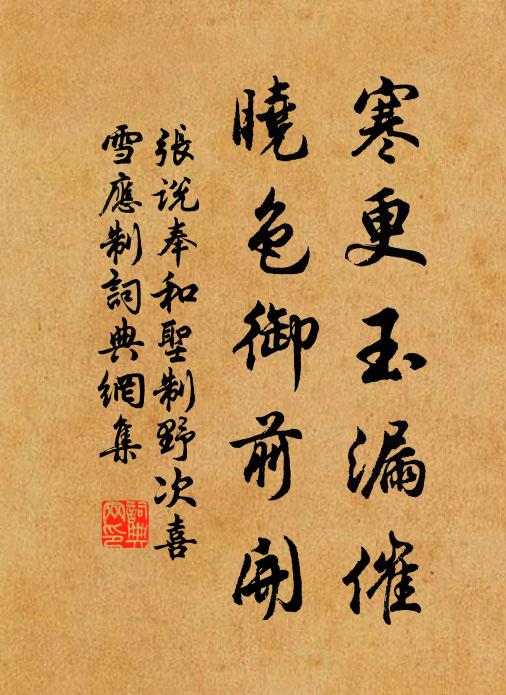 寒更玉漏催
曉色御前開
張説奉和聖制野次喜
雪應制詞典網集
詞典网印